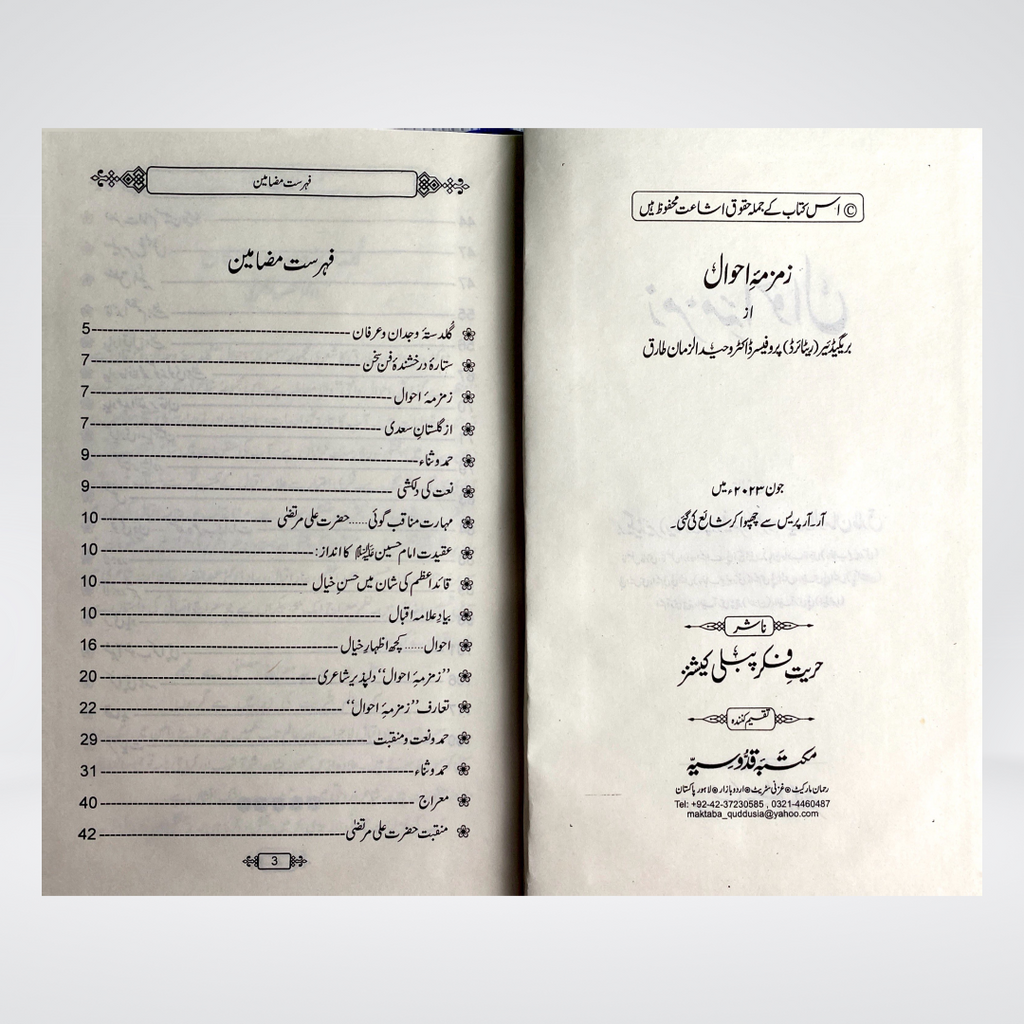 © اس کتاب کے جملہ حقوق اشاعت محفوظ ہیں
زمزمۂ احوال
از
بریگیڈئیر (ریٹائرڈ) پروفیسر ڈاکٹر وحید الزمان طارق
جون ۲۰۲۳ء میں
آر۔آر پریس سے چھپوا کر شائع کی گئی۔
ناشر
حریتِ فکر پبلی کیشنز
تقسیم کنندہ
مکتبہ قدوسیہ
رحمان مارکیٹ ● غزنی سٹریٹ ● اردو بازار ● لاہور پاکستان
Tel: +92-42-37230585 , 0321-4460487
maktaba_quddusia@yahoo.com
فہرست مضامین
فہرست مضامین
گلدستۂ وجدان و عرفان 5
ستارۂ درخشندۂ فن سخن 7
زمزمۂ احوال 7
از گلستانِ سعدی 7
حمد و ثناء 9
نعت کی دلکشی 9
مہارت مناقب گوئی ...... حضرت علی مرتضیٰ 10
عقیدت امام حسین علیہ السلام کا انداز: 10
قائد اعظم کی شان میں حسنِ خیال 10
بیادِ علامہ اقبال 10
احوال ...... کچھ اظہارِ خیال 16
”زمزمۂ احوال“ دلپذیر شاعری 20
تعارف ”زمزمۂ احوال“ 22
حمد و نعت و منقبت 29
حمد و ثناء 31
معراج 40
منقبت حضرت علی مرتضیٰ 42
3